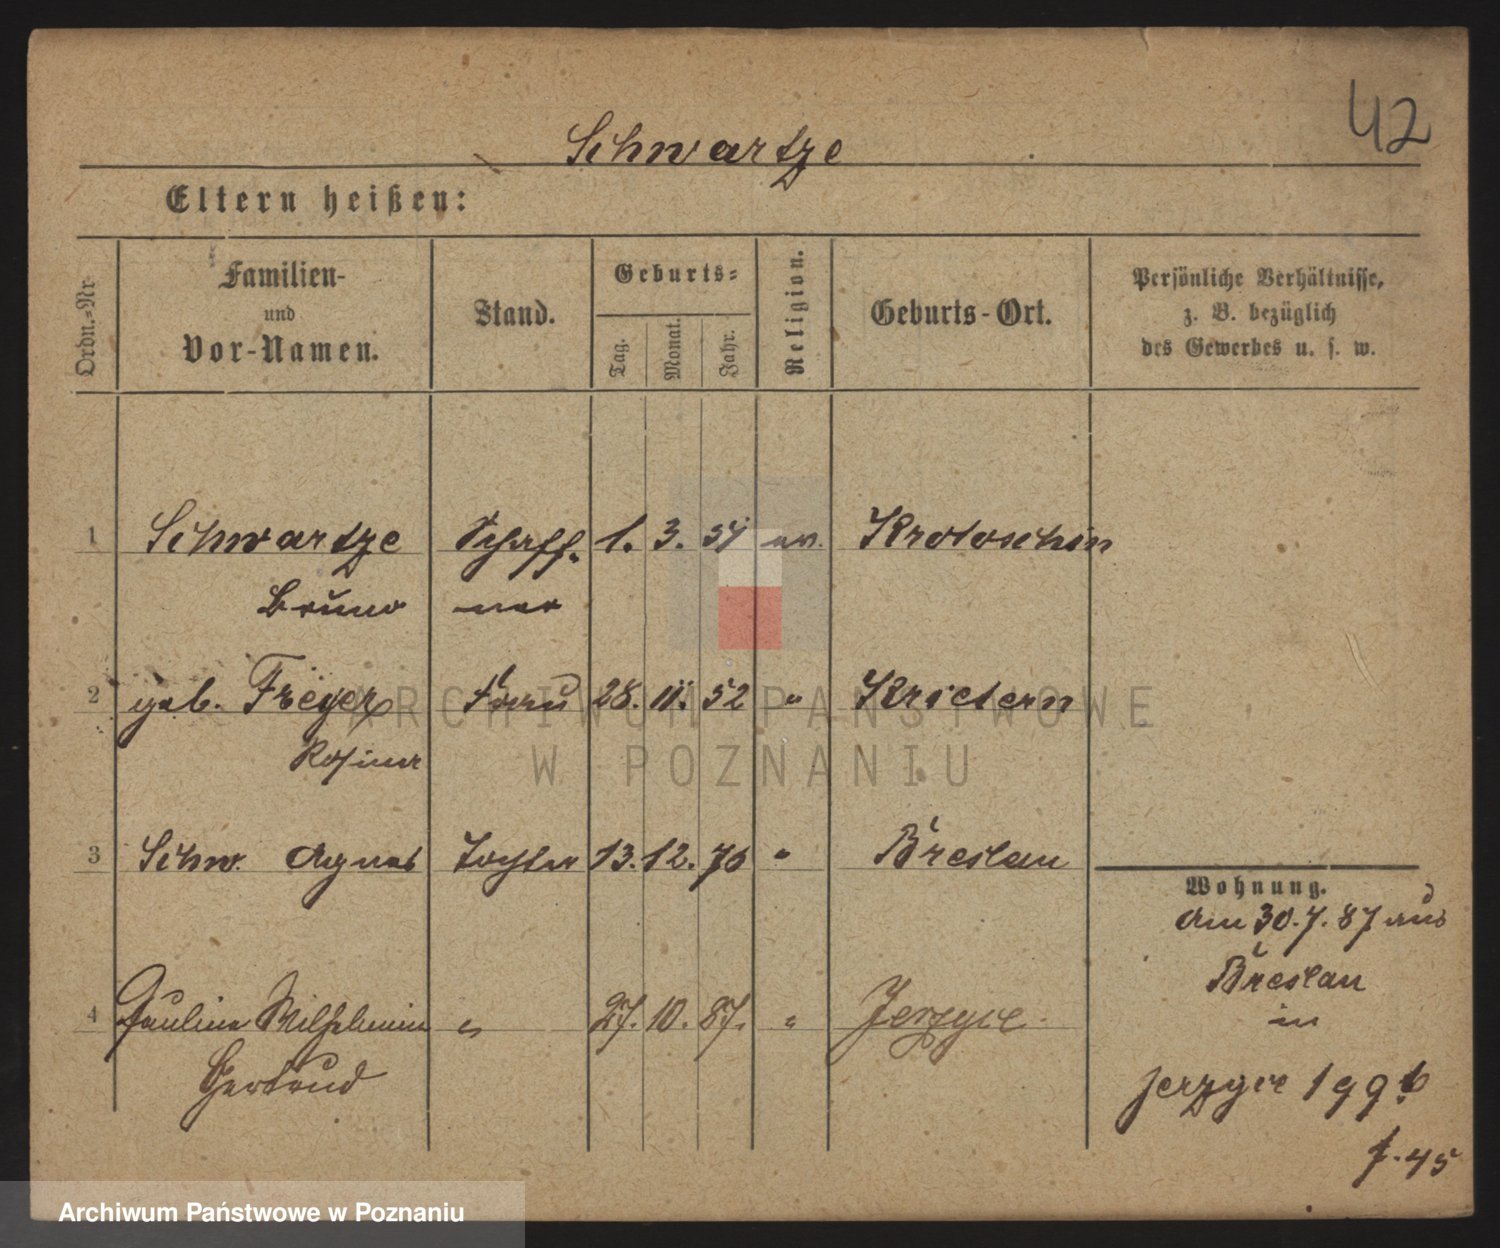 42
Schwartze
Eltern heißen:
Ordn.-Nr.
Familien-
und
Vor-Namen.
Stand.
Geburts-
Tag.
Monat.
Jahr.
Religion.
Geburts-Ort.
Persönliche Verhältnisse,
z. B. bezüglich
des Gewerbes u. s. w.
1 Schwartze Schaff- 1. 3. 54 ev. Krotoschin
Bruno ner
2 geb. Freyer Frau 28. 11. 52 " Krietern
Rosina
3 Schw. Agnes Tochter 13. 12. 76 " Breslau
Wohnung.
am 30.7.87 aus
Breslau
in
4 Pauline Wilhelmine " 27. 10. 87. " Jerzyce
Gertrud
Jerzyce 199b
f. 45
ARCHIWUM PAŃSTWOWE
W POZNANIU
Archiwum Państwowe w Poznaniu